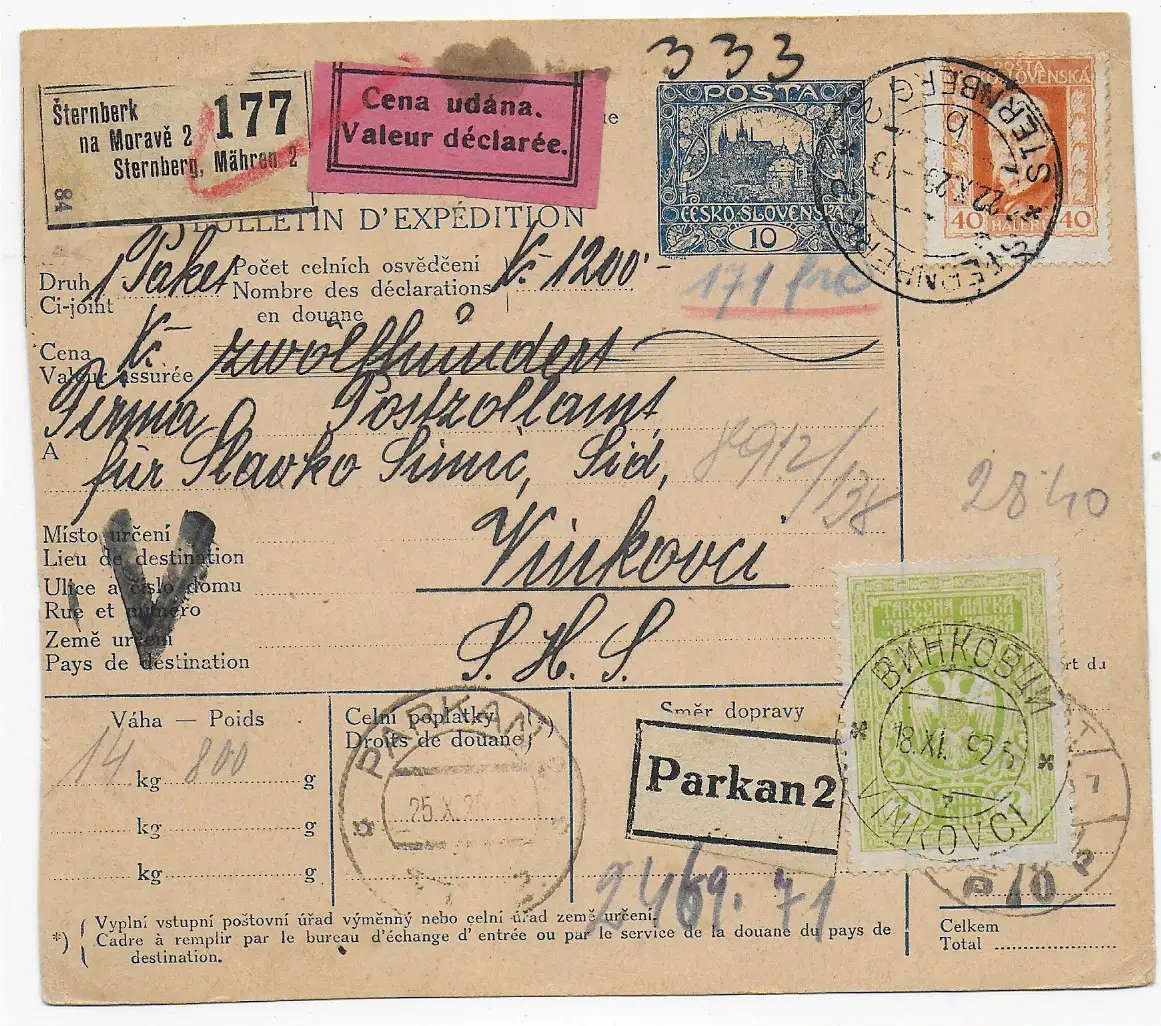 333
Šternberk
na Moravě 2
Sternberg, Mähren 2
177
84
Cena udána.
Valeur déclarée.
POSTA
ČESKO-SLOVENSKÁ
10
POŠTA
ČESKOSLOVENSKÁ
40 HALÉŘŮ 40
STERNBERG 2
BULLETIN D'EXPÉDITION
Druh
Ci-joint
1 Paket
Počet celních osvědčení
Nombre des déclarations
en douane
Kč 1200.-
171 frc
Cena
Valeur assurée
Kč zwölfhundert
Firma Postzollamt
A
für Slavko Simić, Šid,
8912/138
2840
Místo určení
Lieu de destination
Vinkovci
Ulice a číslo domu
Rue et numéro
Země určení
Pays de destination
S. H. S.
V
ТАКСЕНА МАРКА
ВИНКОВЦИ
18.XI.
VINKOVCI
rt du
Váha — Poids
14 kg 800 g
kg g
kg g
Celní poplatky *)
Droits de douane
PARKAN
25.X.2
Směr dopravy
Parkan 2
2469.71
*) Vyplní vstupní poštovní úřad výměnný nebo celní úřad země určení.
Cadre à remplir par le bureau d'échange d'entrée ou par le service de la douane du pays de
destination.
Celkem
Total